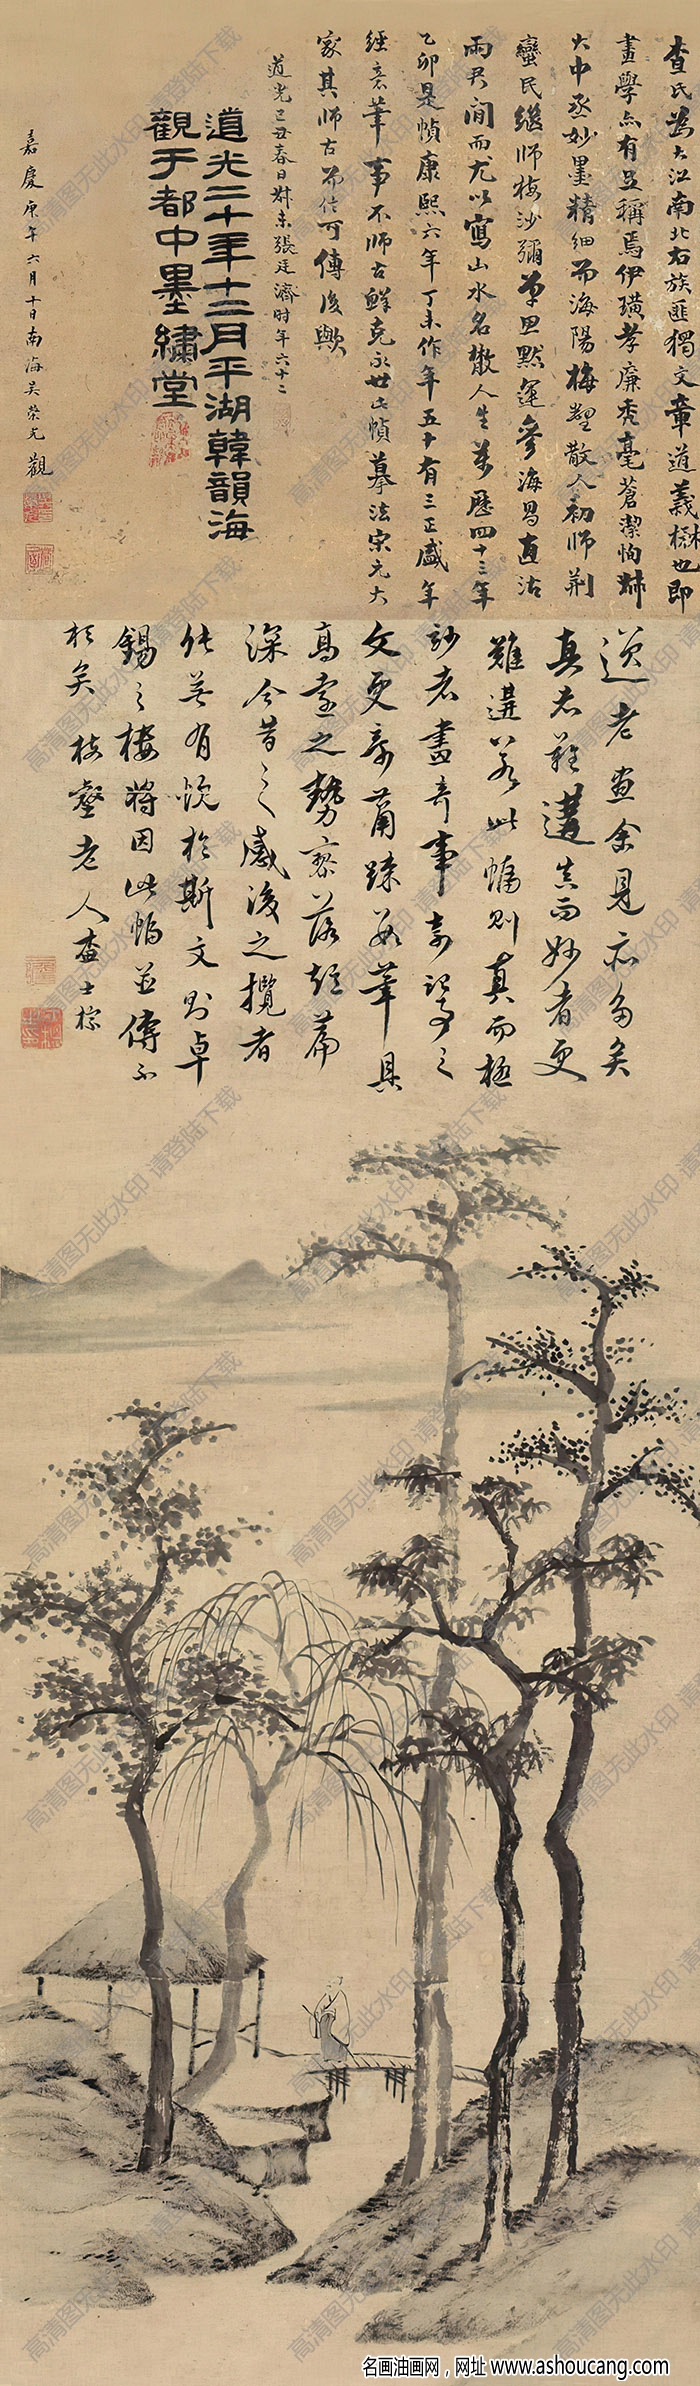 查氏為大江南北右族匪獨文章道義楙也即
畫學亦有足稱焉伊璜孝廉禿毫蒼潔恂
大中丞妙墨精細而海陽梅壑散人初師荆
蠻民繼師梅沙彌單思默運參海昌直沽
兩君間而尤以寫山水名散人生萬歷四十三年
乙卯是幀康熙六年丁未作年五十有三正盛年
經意筆事不師古鮮克永世此幀摹法宋元大
家其師古而信可傳後歟
道光己丑春日尗未張廷濟時年六十二
道光二十年十二月平湖韓韻海
觀于都中墨繡堂
嘉慶庚午六月十日南海吳榮光觀
迂老畫余見亦多矣
真者難遘真而妙者更
難遘若此幅則真而極
妙者畫奇事奇記事之
文更奇蕭疎數筆具
高遠之勢寥落短篇
深今昔之感後之攬者
能無有慨於斯文則卓
錫之樓將因此幅並傳不
朽矣梅壑老人查士標
高清图无此水印 请登陆下载
名画油画网，网址 www.ashoucang.com